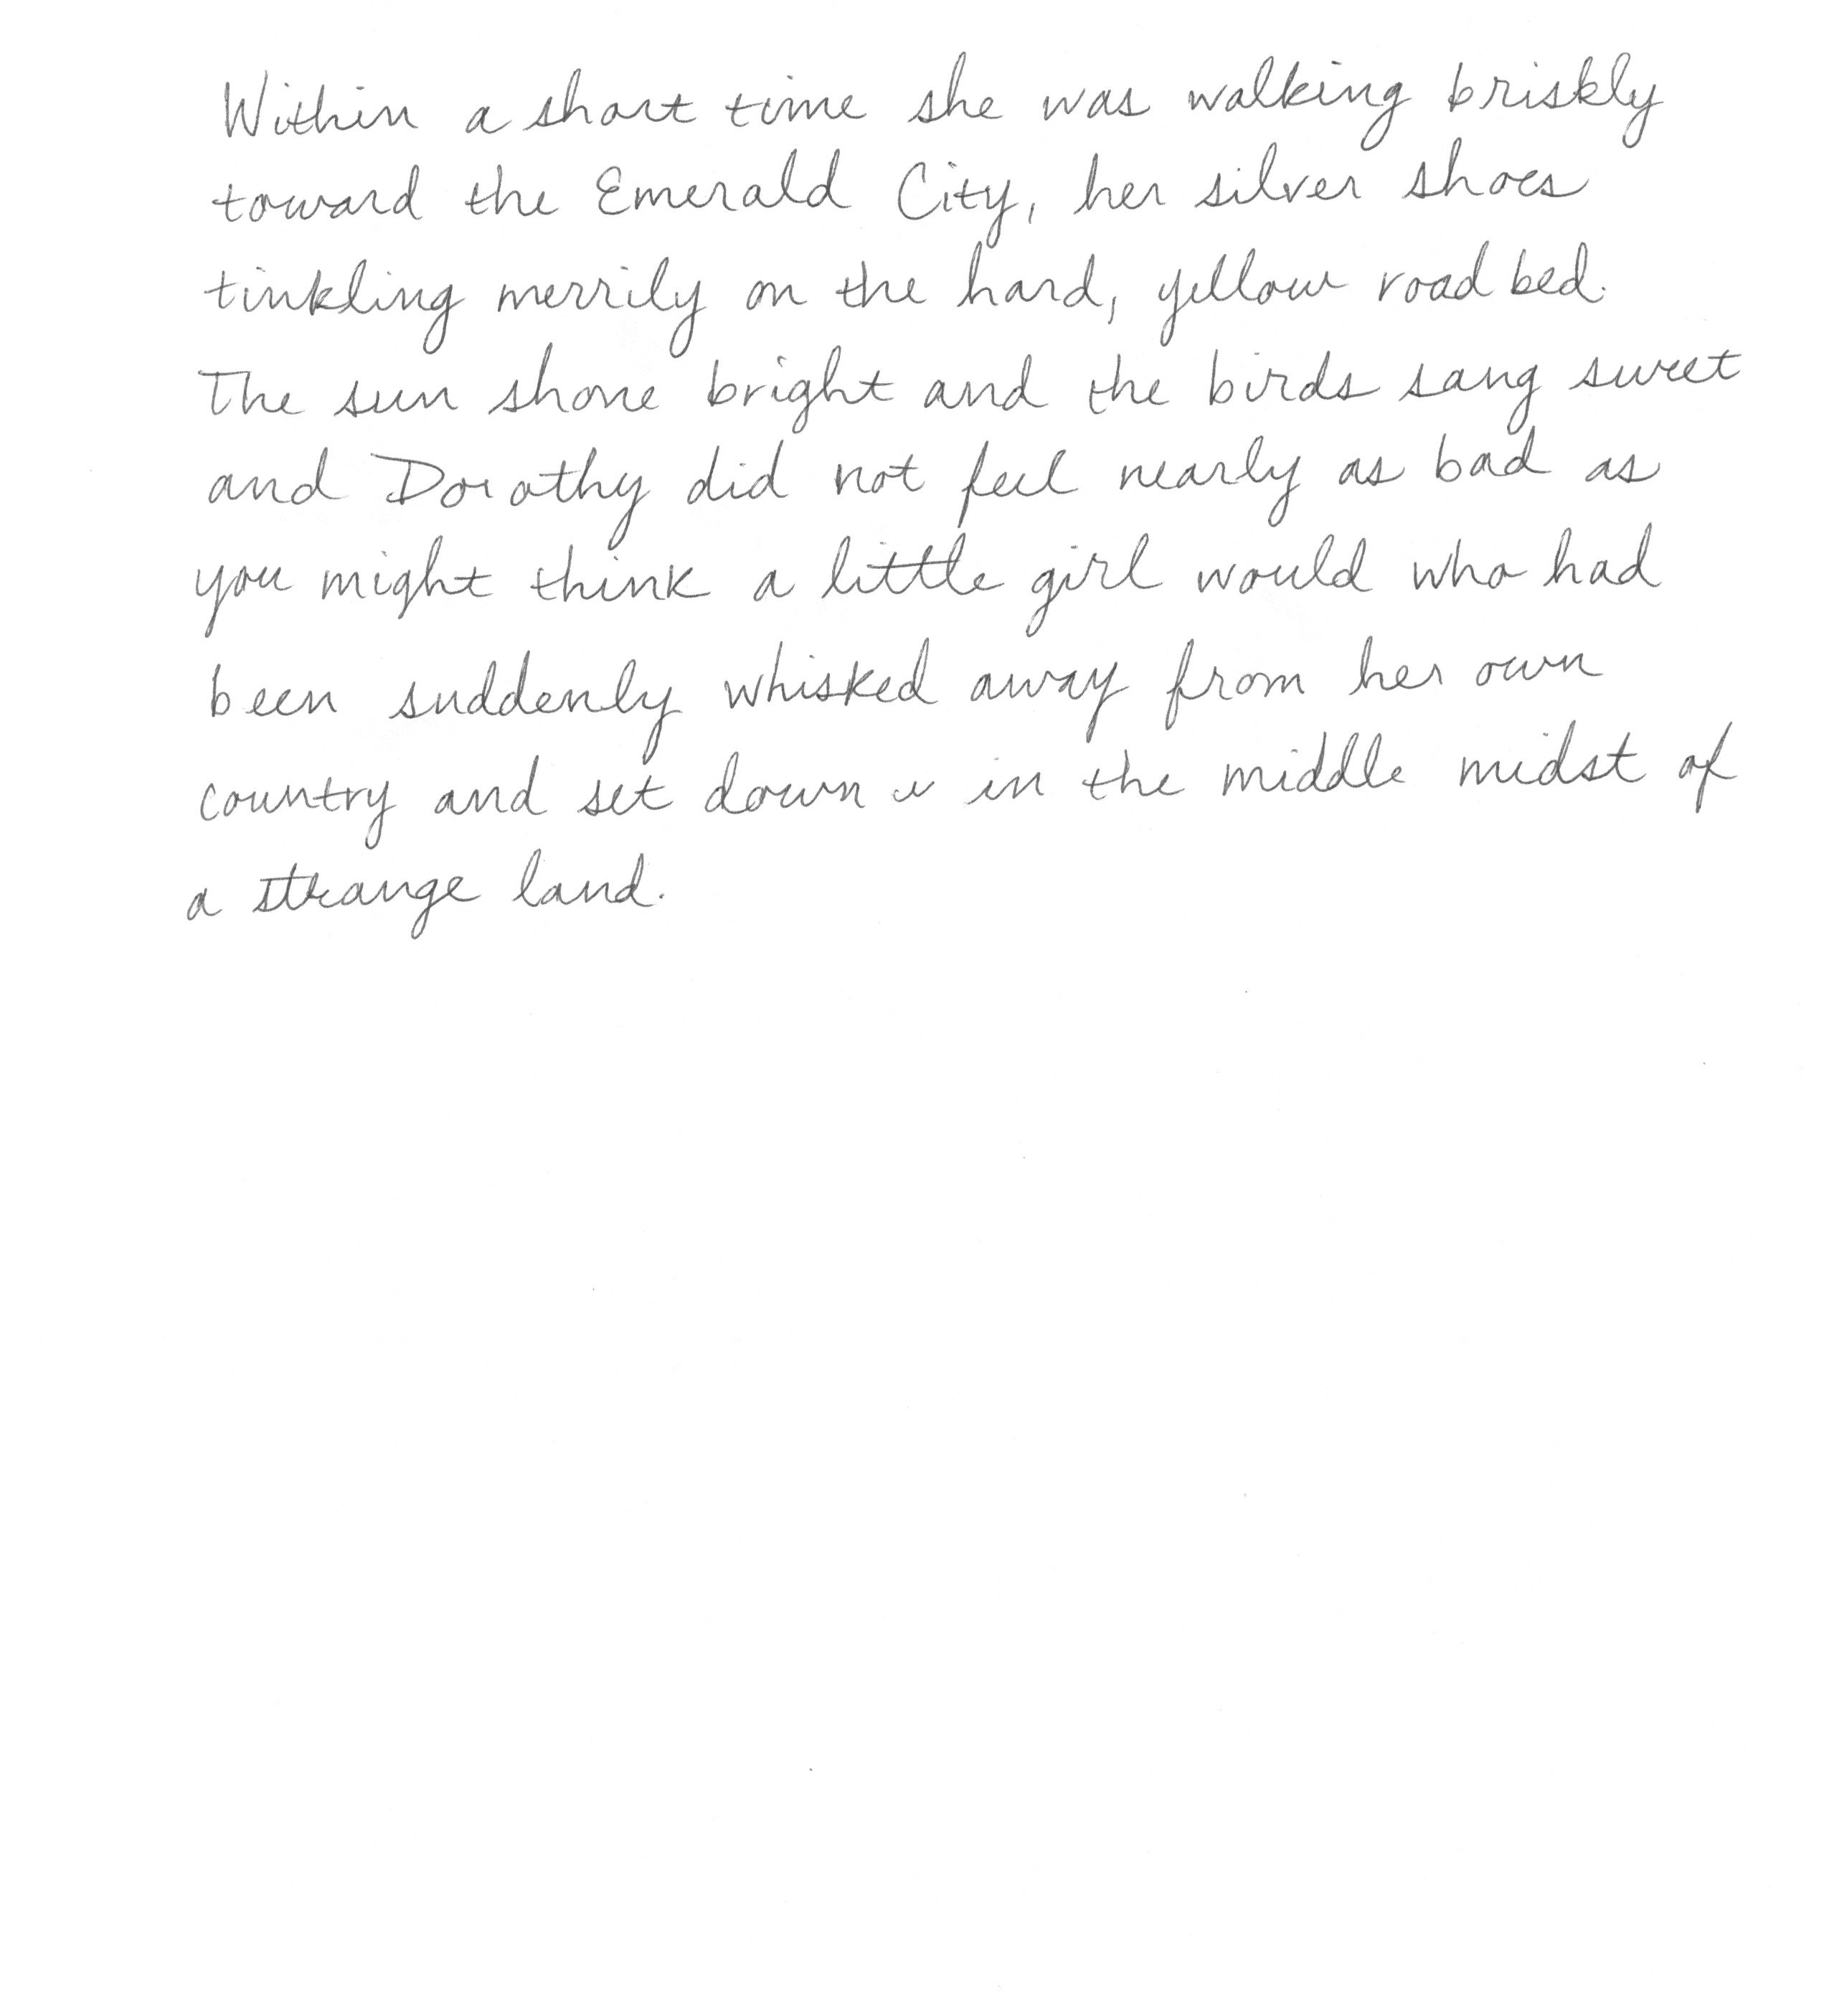 Within a short time she was walking briskly
toward the Emerald City, her silver shoes
tinkling merrily on the hard, yellow road bed.
The sun shone bright and the birds sang sweet
and Dorothy did not feel nearly as bad as
you might think a little girl would who had
been suddenly whisked away from her own
country and set down in the middle midst of
a strange land.